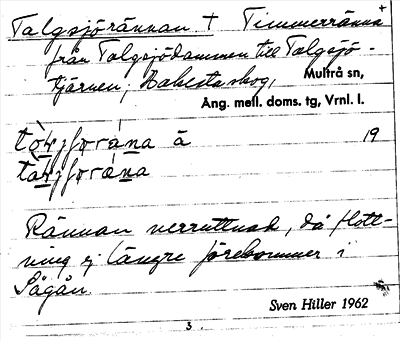 Talgsjörännan + Timmerränna +
från Talgsjödammen till Talgsjö-
tjärnen, skog, Multrå sn,
Ång. mell. doms. tg, Vrnl. l.
19
Rännan verruttnad, då flott-
ning ej längre förekommer i
Sågån.
Sven Hiller 1962
3.